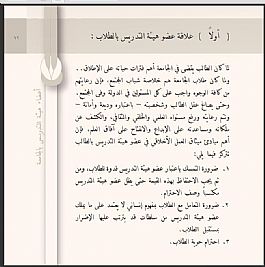 [ أولًا ] علاقة عضو هيئة التدريس بالطلاب :
لما كان الطالب يقضي في الجامعة أهم فترات حياته على الإطلاق..
ولما كان طلاب الجامعة هم خلاصة شباب المجتمع، فإن رعايتهم
من كافة الوجوه واجب على كل المسئولين في الدولة وفي المجتمع.
وحتى يمكن عقل الطالب وشخصيته - باعتباره وديعة وأمانة -
وتتم رعايته ورفع مستواه العلمي والخلقي والثقافي، والكشف عن
ملكاته ومساعدته على الإبداع والانفتاح على آفاق العلم، فإن
أهم مبادئ ميثاق العمل الأخلاقي في عضو هيئة التدريس بالطلاب
تتركز فيما يلي:
١. ضرورة التمسك باعتبار عضو هيئة التدريس قدوة للطلاب، ومن
ثم يجب الاحتفاظ بهذه القيمة حتى يظل عضو هيئة التدريس
مكتسبًا وصف الاحترام.
٢. ضرورة التعامل مع الطلاب بمفهوم إنساني لا يعتمد على ما يملك
عضو هيئة التدريس من سلطات قد يترتب عليها الإضرار
بمستقبل الطلاب.
٣. احترام حرية الطلاب.
أعضاء هيئة التدريس بالجامعة